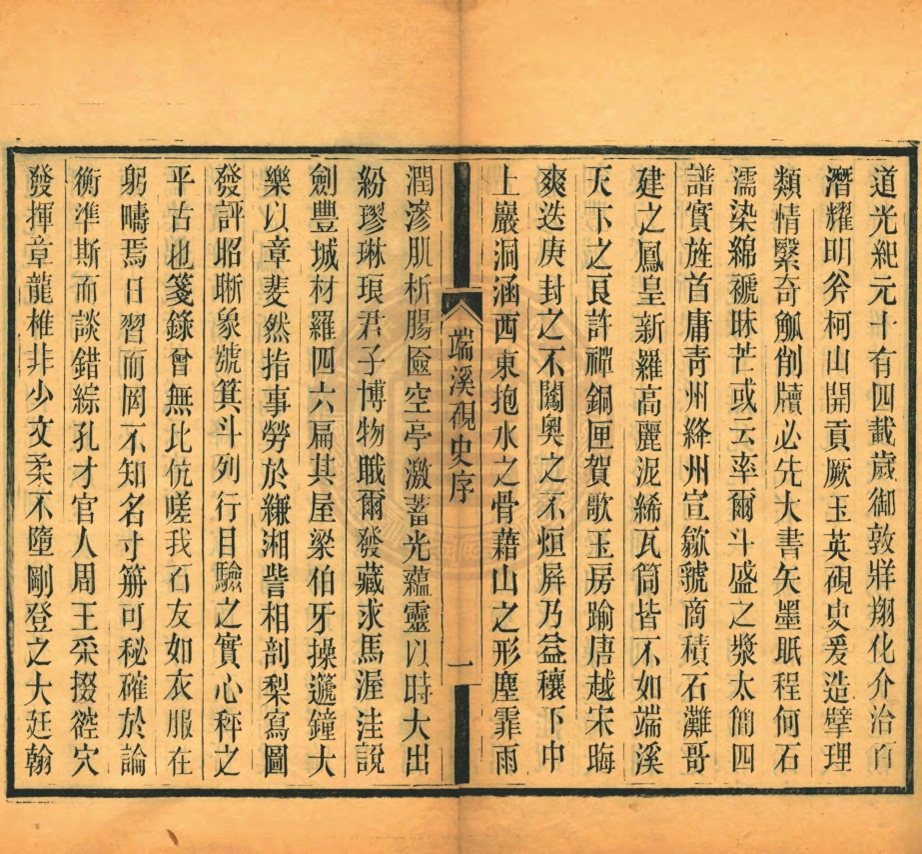 道光紀元十有四載歲御敦牂翔化介治百
潛耀明斧柯山開貢厥玉英硯史爰造擘理
類情繄奇觚削牘必先大書矢墨眂程何石
濡染綿褫昧芒或云率爾斗盛之漿太簡四
譜實旌首庸青州絳州宣歙虢商積石灘哥
建之鳳皇新羅高麗泥絺瓦筒皆不如端溪
天下之良許禪銅匣賀歌玉房踰唐越宋晦
爽迭庚封之不闢奧之不烜屛乃益穰下中
上巖洞涵西東抱水之骨藉山之形塵霏雨
端溪硯史序
一
潤滲肌析腸匳空亭激蓄光蘊靈以時大出
紛璆琳琅君子博物職爾發藏求馬渥洼說
劍豐城材羅四六扁其屋梁伯牙操邈鐘大
樂以章斐然指事勞於縑湘訾相剖梨寫圖
發評昭晣象號箕斗列行目驗之實心秤之
平古也箋錄曾無比伉嗟我石友如衣服在
躬疇焉日習而罔不知名寸冊可秘確於論
衡準斯而談錯綜孔才官人周王采掇嵆穴
發揮章龍椎非少文柔不墮剛登之大廷翰